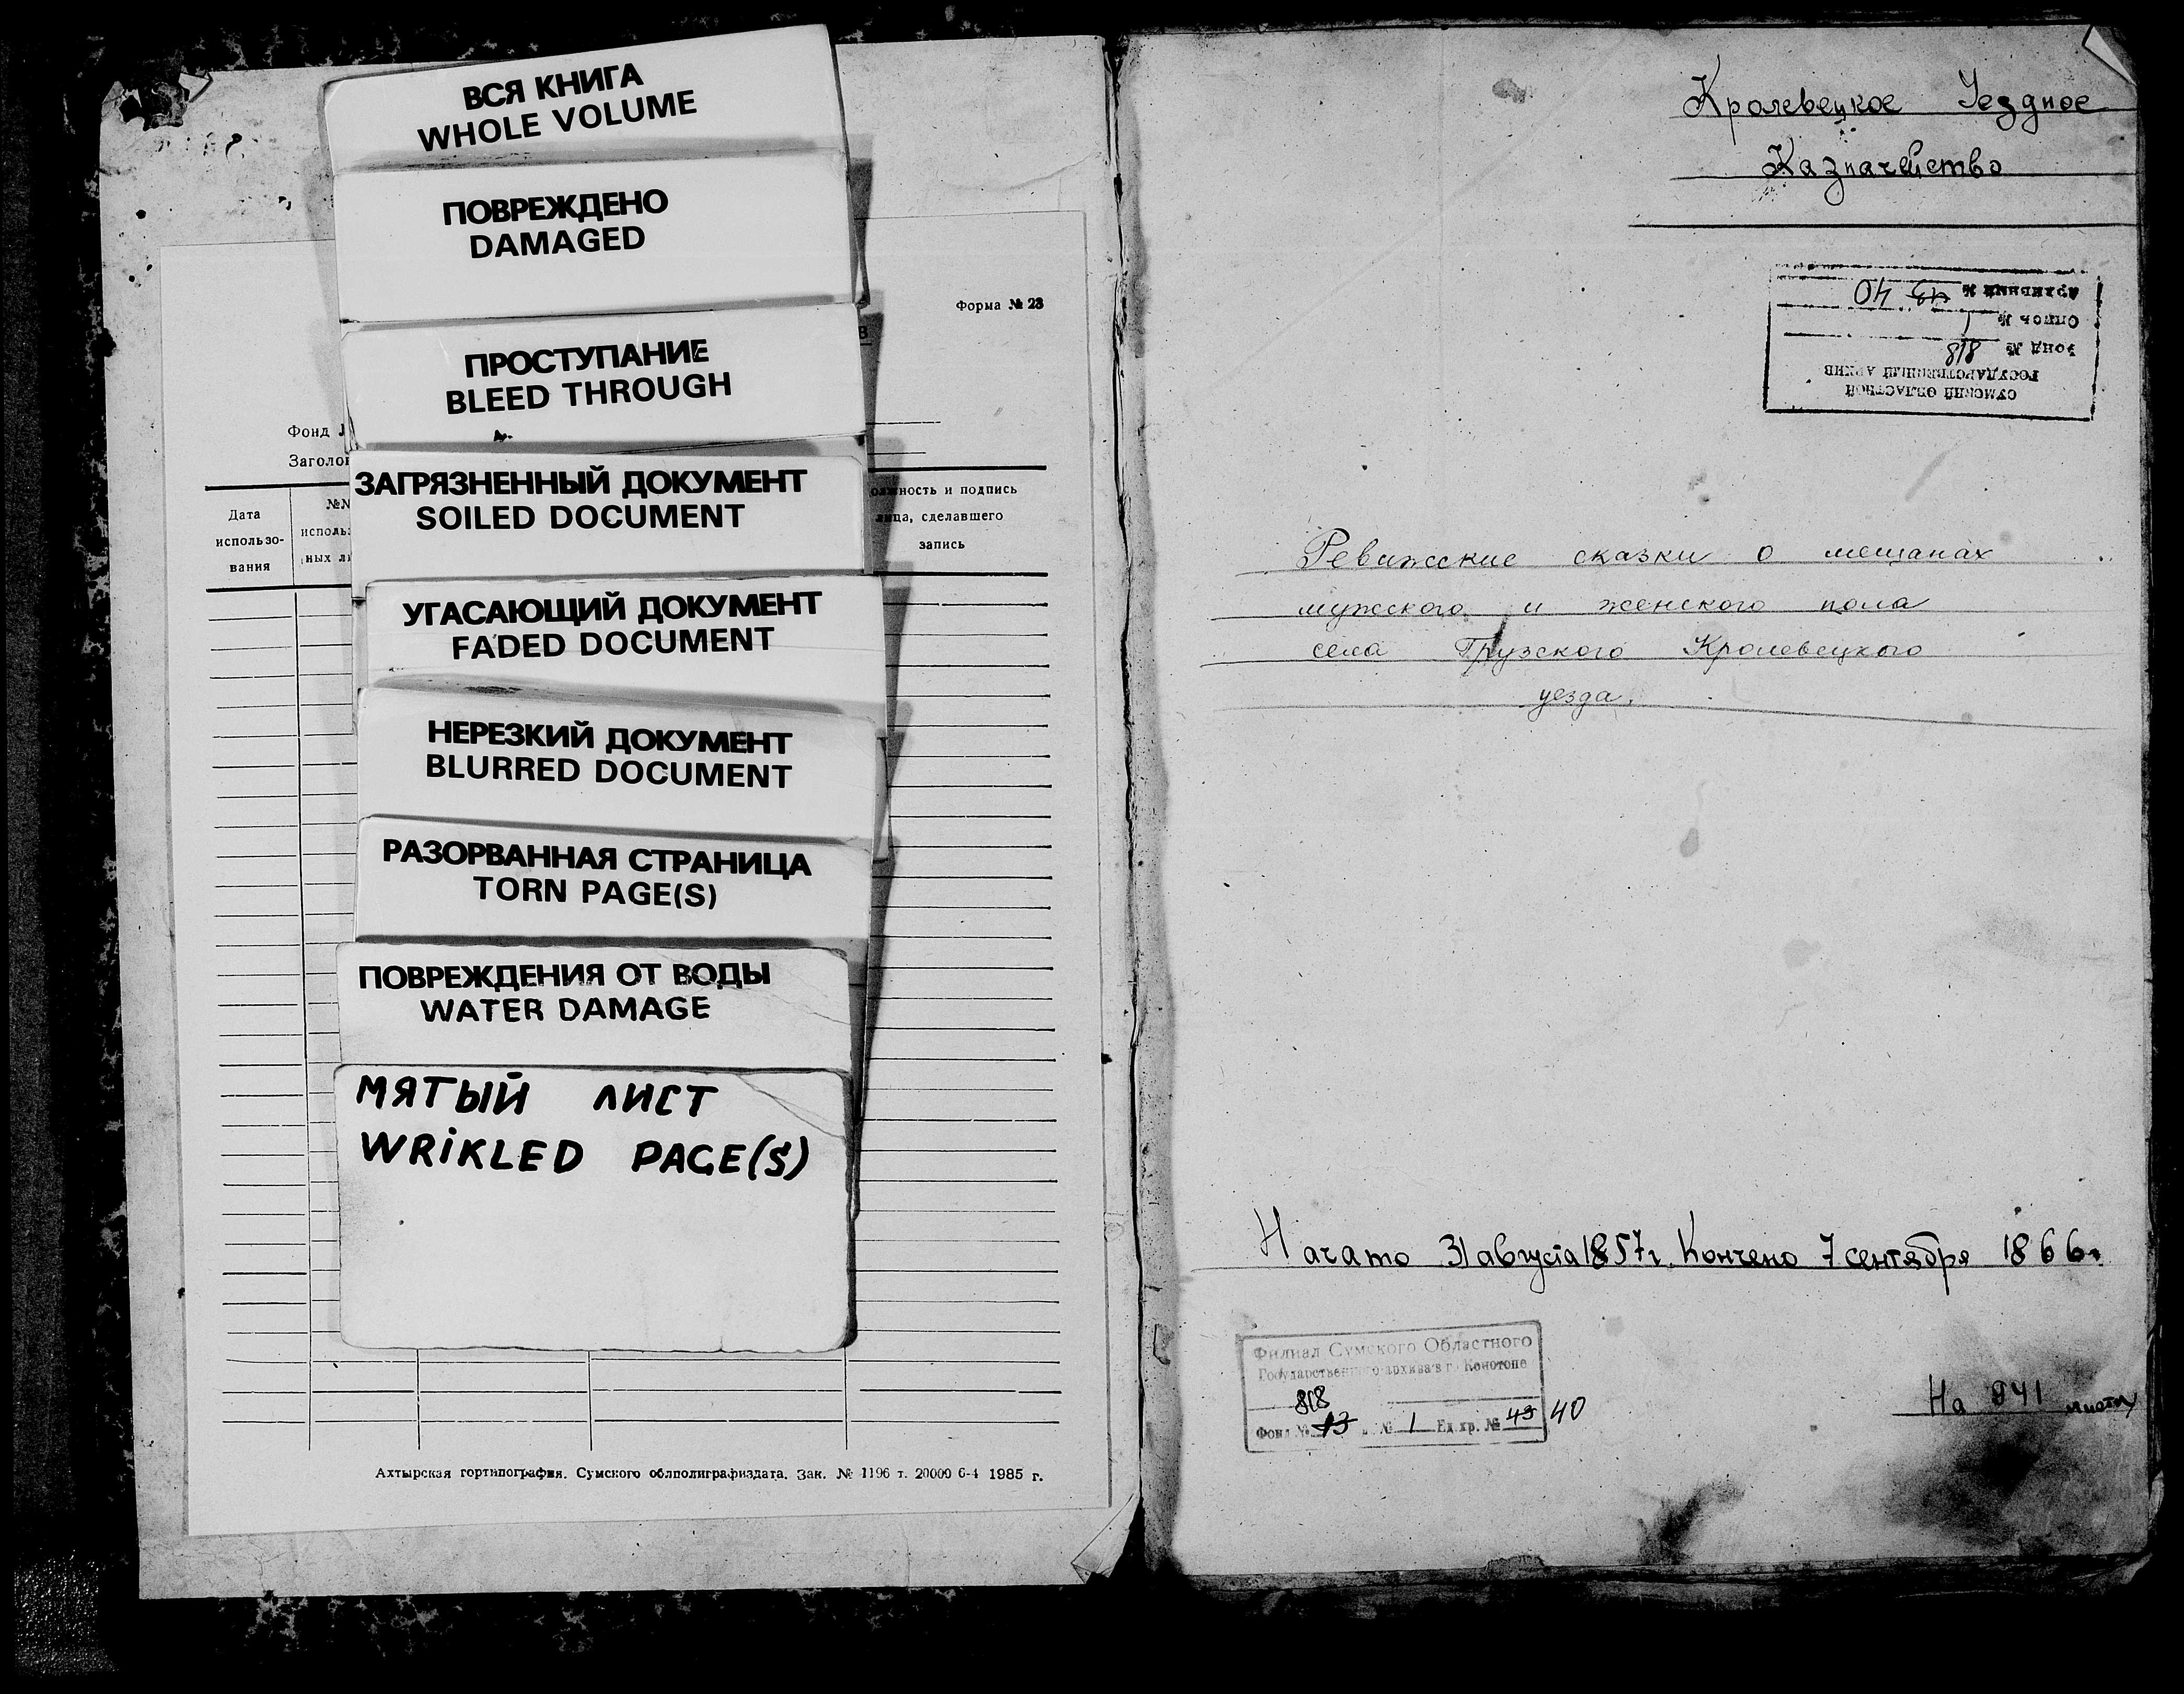 ВСЯ КНИГА
WHOLE VOLUME
ПОВРЕЖДЕНО
DAMAGED
ПРОСТУПАНИЕ
BLEED THROUGH
ЗАГРЯЗНЕННЫЙ ДОКУМЕНТ
SOILED DOCUMENT
УГАСАЮЩИЙ ДОКУМЕНТ
FADED DOCUMENT
НЕРЕЗКИЙ ДОКУМЕНТ
BLURRED DOCUMENT
РАЗОРВАННАЯ СТРАНИЦА
TORN PAGE(S)
ПОВРЕЖДЕНИЯ ОТ ВОДЫ
WATER DAMAGE
МЯТЫЙ ЛИСТ
WRIKLED PAGE(S)
Форма № 23
Фонд
Дата
использо-
вания
ных
и подпись
сделавшего
запись
Ахтырская гортипография. Сумского облполиграфиздата. Зак. № 1196 т. 20000 6-4 1985 г.
Кролевецкое Уездное
Казначейство
СУМСКИЙ ОБЛАСТНОЙ
ГОСУДАРСТВЕННЫЙ АРХИВ
Фонд № 818
Опись № 1
Архивный № 43 40
Ревижские сказки о мещанах
мужского и женского пола
села Грузского Кролевецкого
уезда.
Начато 31 августа 1857 г. Кончено 7 сентября 1866г.
Филиал Сумского Областного
Государственного архива в г. Конотопе
818
Фонд № 13 № 1 Ед. хр. № 43 40
На 941 листах